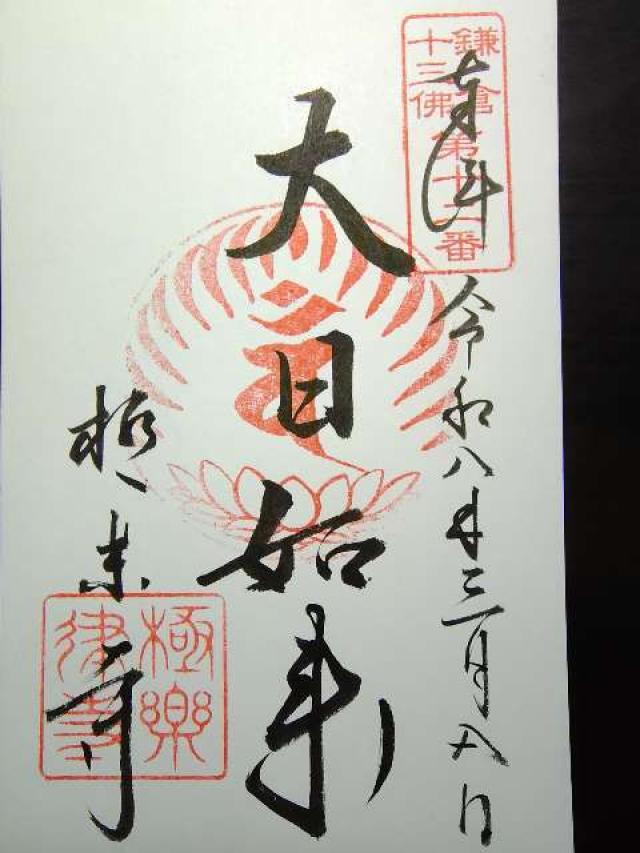 鎌倉
十三佛
第十二番
奉拝
令和八年三月八日
大日如来
極楽寺
極樂
律寺